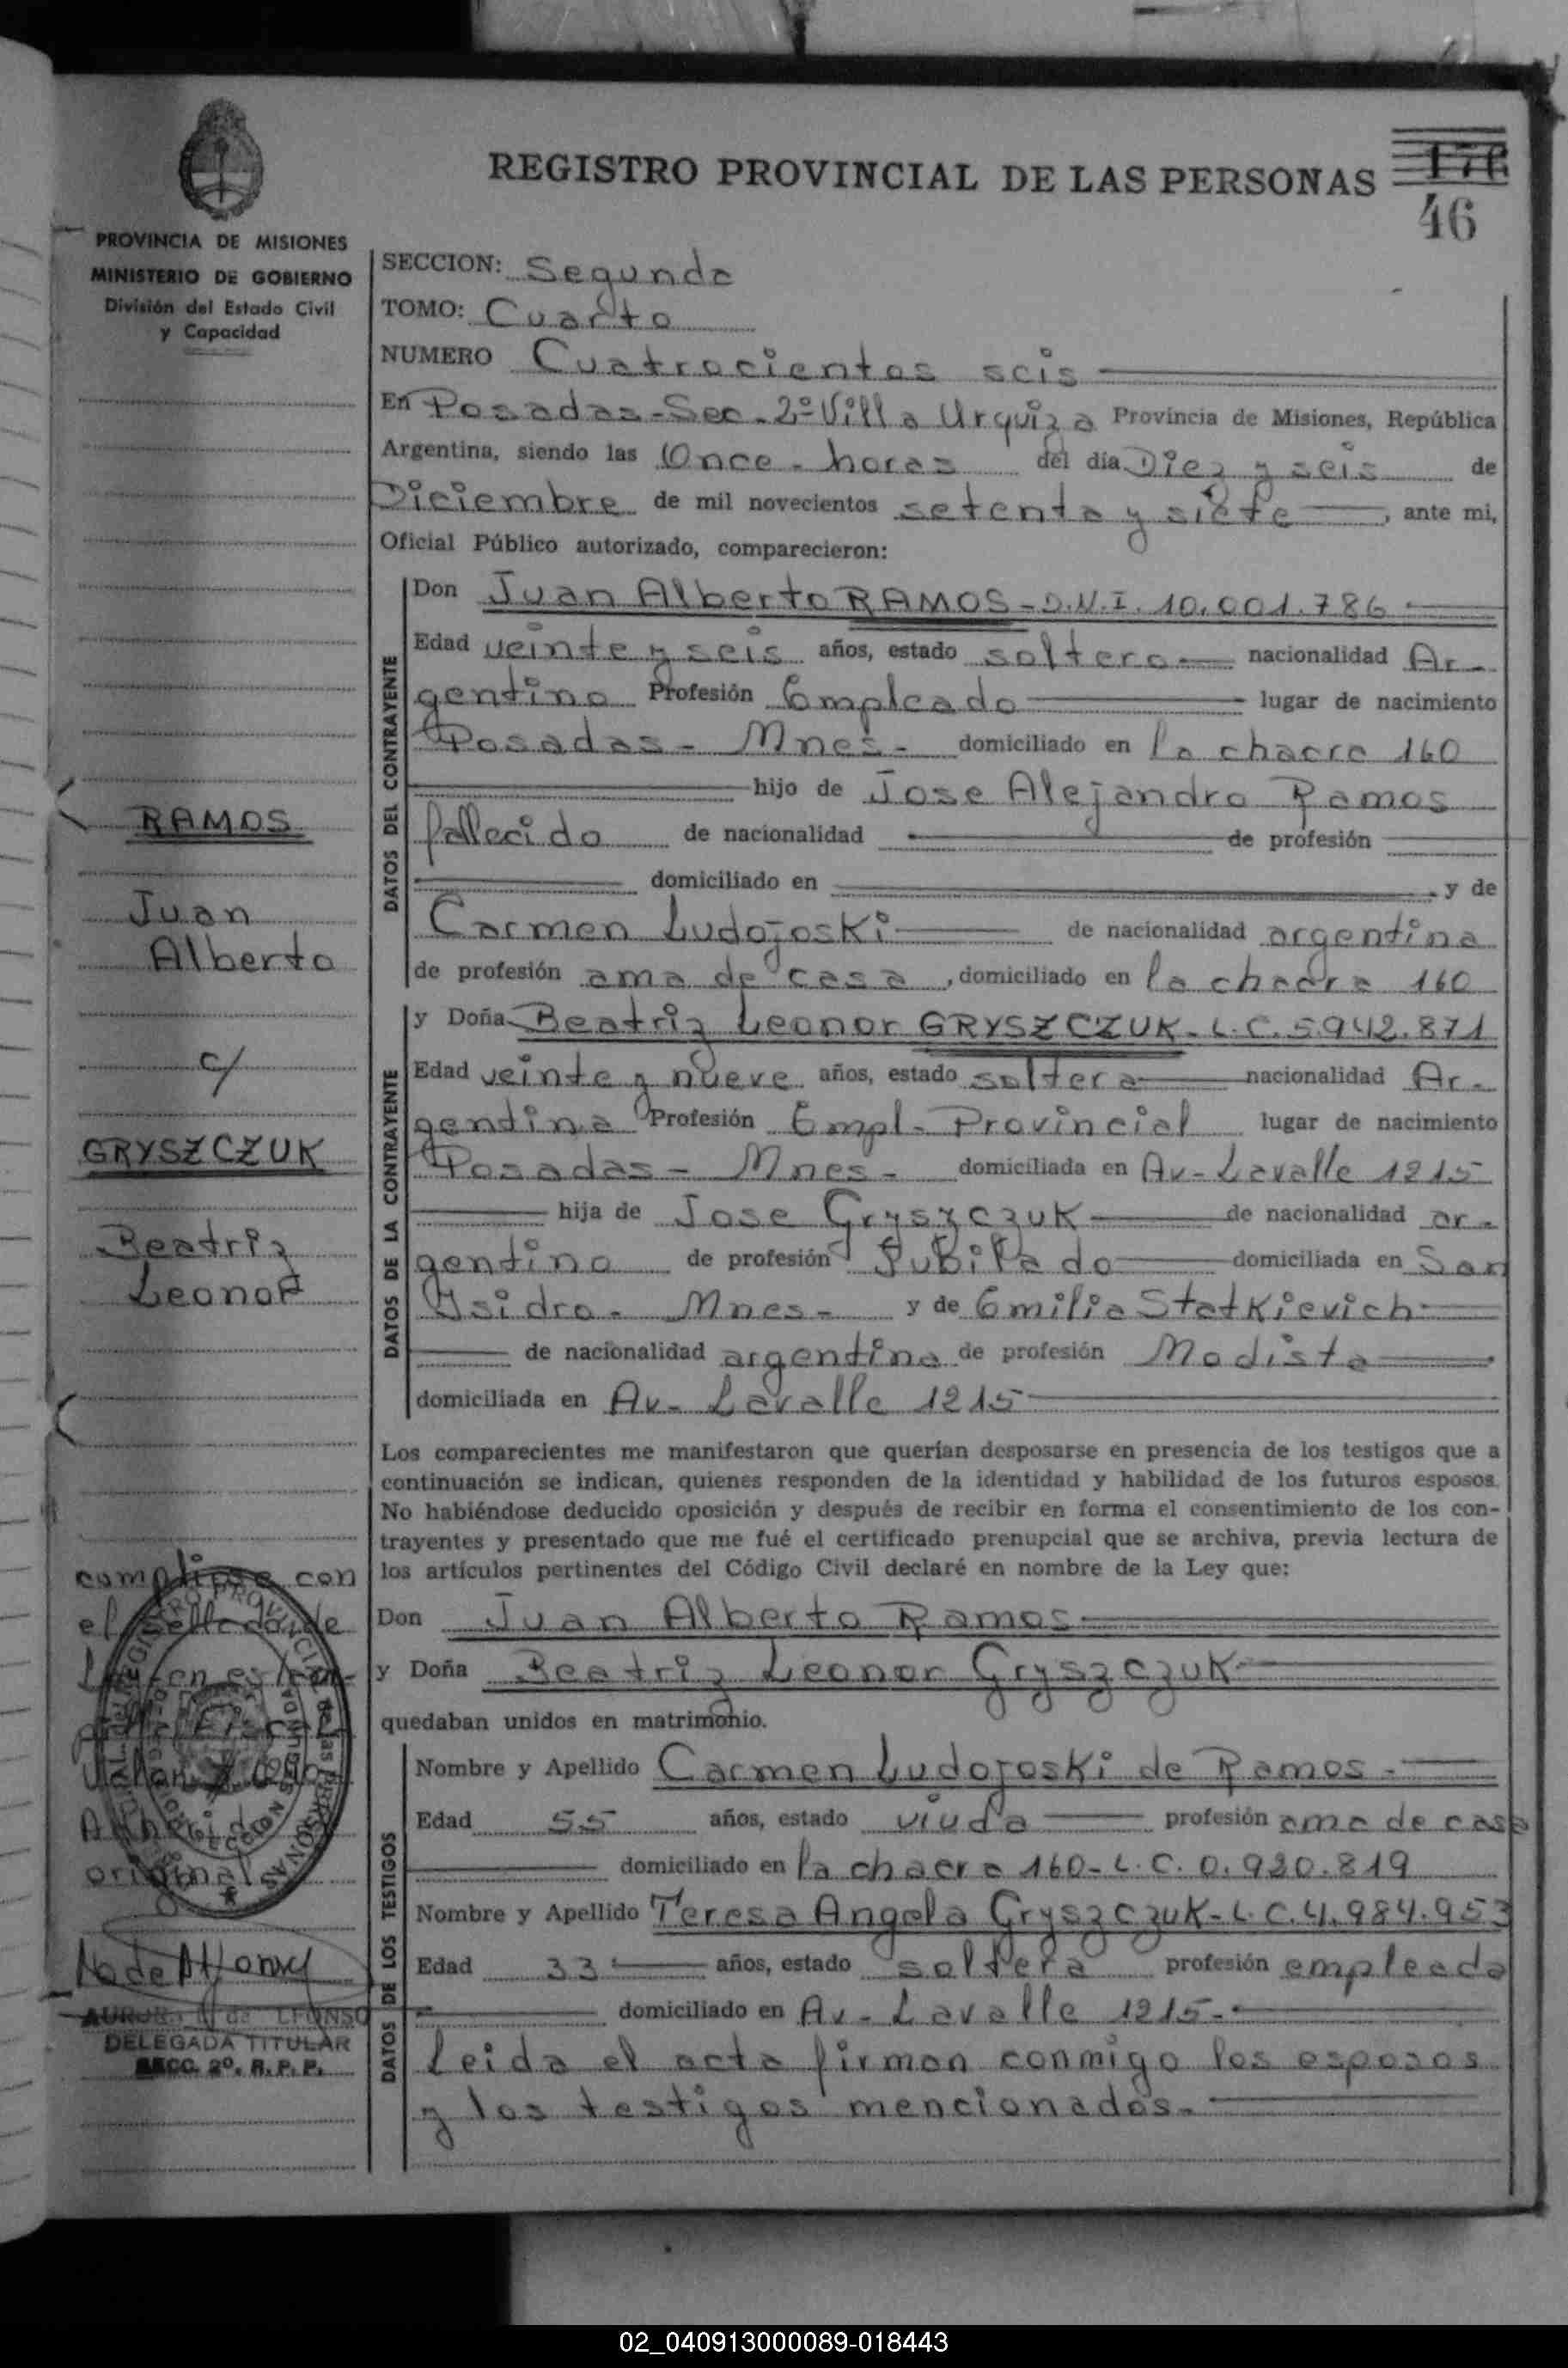 REGISTRO PROVINCIAL DE LAS PERSONAS
46
PROVINCIA DE MISIONES
MINISTERIO DE GOBIERNO
División del Estado Civil
y Capacidad
SECCION: Segunda
TOMO: Cuarto
NUMERO Cuatrocientos seis
En Posadas-Sec-2º-Villa Urquiza Provincia de Misiones, República
Argentina, siendo las Once-horas del día Diez y seis de
Diciembre de mil novecientos setenta y siete, ante mi,
Oficial Público autorizado, comparecieron:
DATOS DEL CONTRAYENTE
Don Juan Alberto RAMOS-D.N.I. 10.001.786
Edad veinte y seis años, estado soltero nacionalidad Ar-
gentino Profesión Empleado lugar de nacimiento
Posadas- Mnes- domiciliado en la chacra 160
hijo de Jose Alejandro Ramos
fallecido de nacionalidad de profesión
domiciliado en y de
Carmen Ludojoski de nacionalidad argentina
de profesión ama de casa, domiciliado en la chacra 160
RAMOS
Juan
Alberto
c/
GRYSZCZUK
Beatriz
Leonor
DATOS DE LA CONTRAYENTE
y Doña Beatriz Leonor GRYSZCZUK-L.C.5.942.871
Edad veinte y nueve años, estado soltera nacionalidad Ar-
gentina Profesión Empl-Provincial lugar de nacimiento
Posadas- Mnes- domiciliada en Av-Lavalle 1215
hija de Jose Gryszczuk de nacionalidad ar-
gentino de profesión Jubilado domiciliada en San
Ysidro- Mnes- y de Emilia Statkievich
de nacionalidad argentina de profesión Modista
domiciliada en Av-Lavalle 1215
Los comparecientes me manifestaron que querían desposarse en presencia de los testigos que a
continuación se indican, quienes responden de la identidad y habilidad de los futuros esposos.
No habiéndose deducido oposición y después de recibir en forma el consentimiento de los con-
trayentes y presentado que me fué el certificado prenupcial que se archiva, previa lectura de
los artículos pertinentes del Código Civil declaré en nombre de la Ley que:
Don Juan Alberto Ramos
y Doña Beatriz Leonor Gryszczuk
quedaban unidos en matrimonio.
DATOS DE LOS TESTIGOS
Nombre y Apellido Carmen Ludojoski de Ramos-
Edad 55 años, estado viuda profesión ama de casa
domiciliado en la chacra 160-L.C.0.920.819
Nombre y Apellido Teresa Angela Gryszczuk-L.C.4.984.953
Edad 33 años, estado soltera profesión empleada
domiciliado en Av-Lavalle 1215-
Leida el acta firman conmigo los esposos
y los testigos mencionados-
con
el sellado de
original
DELEGADA TITULAR
SECC. 2º. R. P. P.
02_040913000089-018443